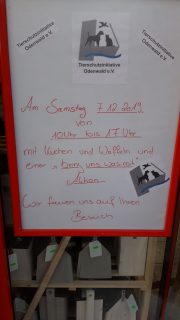 Tierschutzinitiative
Odenwald e.V.
Tierschutzinitiative
Odenwald e.V.
Tierschutzinitiative
Odenwald e.V.
Am Samstag 7.12.2019
von
10 Uhr bis 17 Uhr
mit Kuchen und Waffeln und
einer "
uns
"
Aktion
Wir freuen uns auf Ihren
Besuch